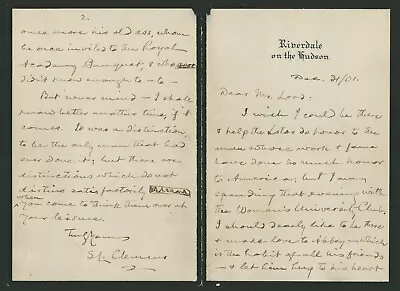 Riverdale
on the Hudson
Dec. 31/01.
Dear Mr. Lord:
I wish I could be there
& help the Lotos do honor to the
man whose work & fame
have done so much honor
to America; but I am
spending that evening with
the Woman's University Club.
I should dearly like to be there
& make love to Abbey — which
is the habit of all his friends
— & let him to his heart
2.
once more his old ass, whom
he once invited to the Royal
Academy Banquet, & who
didn't know enough to — to —
But never mind — I shall
know better another time, if it
comes. It was a distinction,
to be the only man that had
ever done it; but there are
distinctions which do not
distinc satisfactorily
when
you come to think them over at
your leisure.
Truly Yours
SL. Clemens